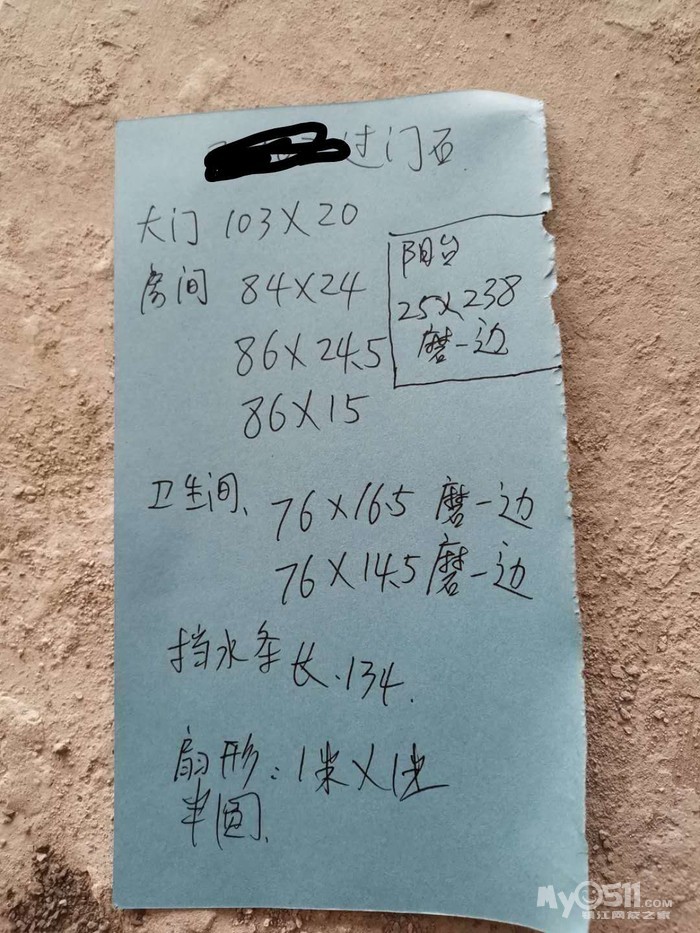 过门石
大门 103X20
房间 84X24
86X24.5
86X15
阳台
25X238
磨一边
卫生间、76X16.5 磨一边
76X14.5 磨一边
挡水条长.134.
扇形：1米X1米
半圆.
My0511.COM
镇江网友之家